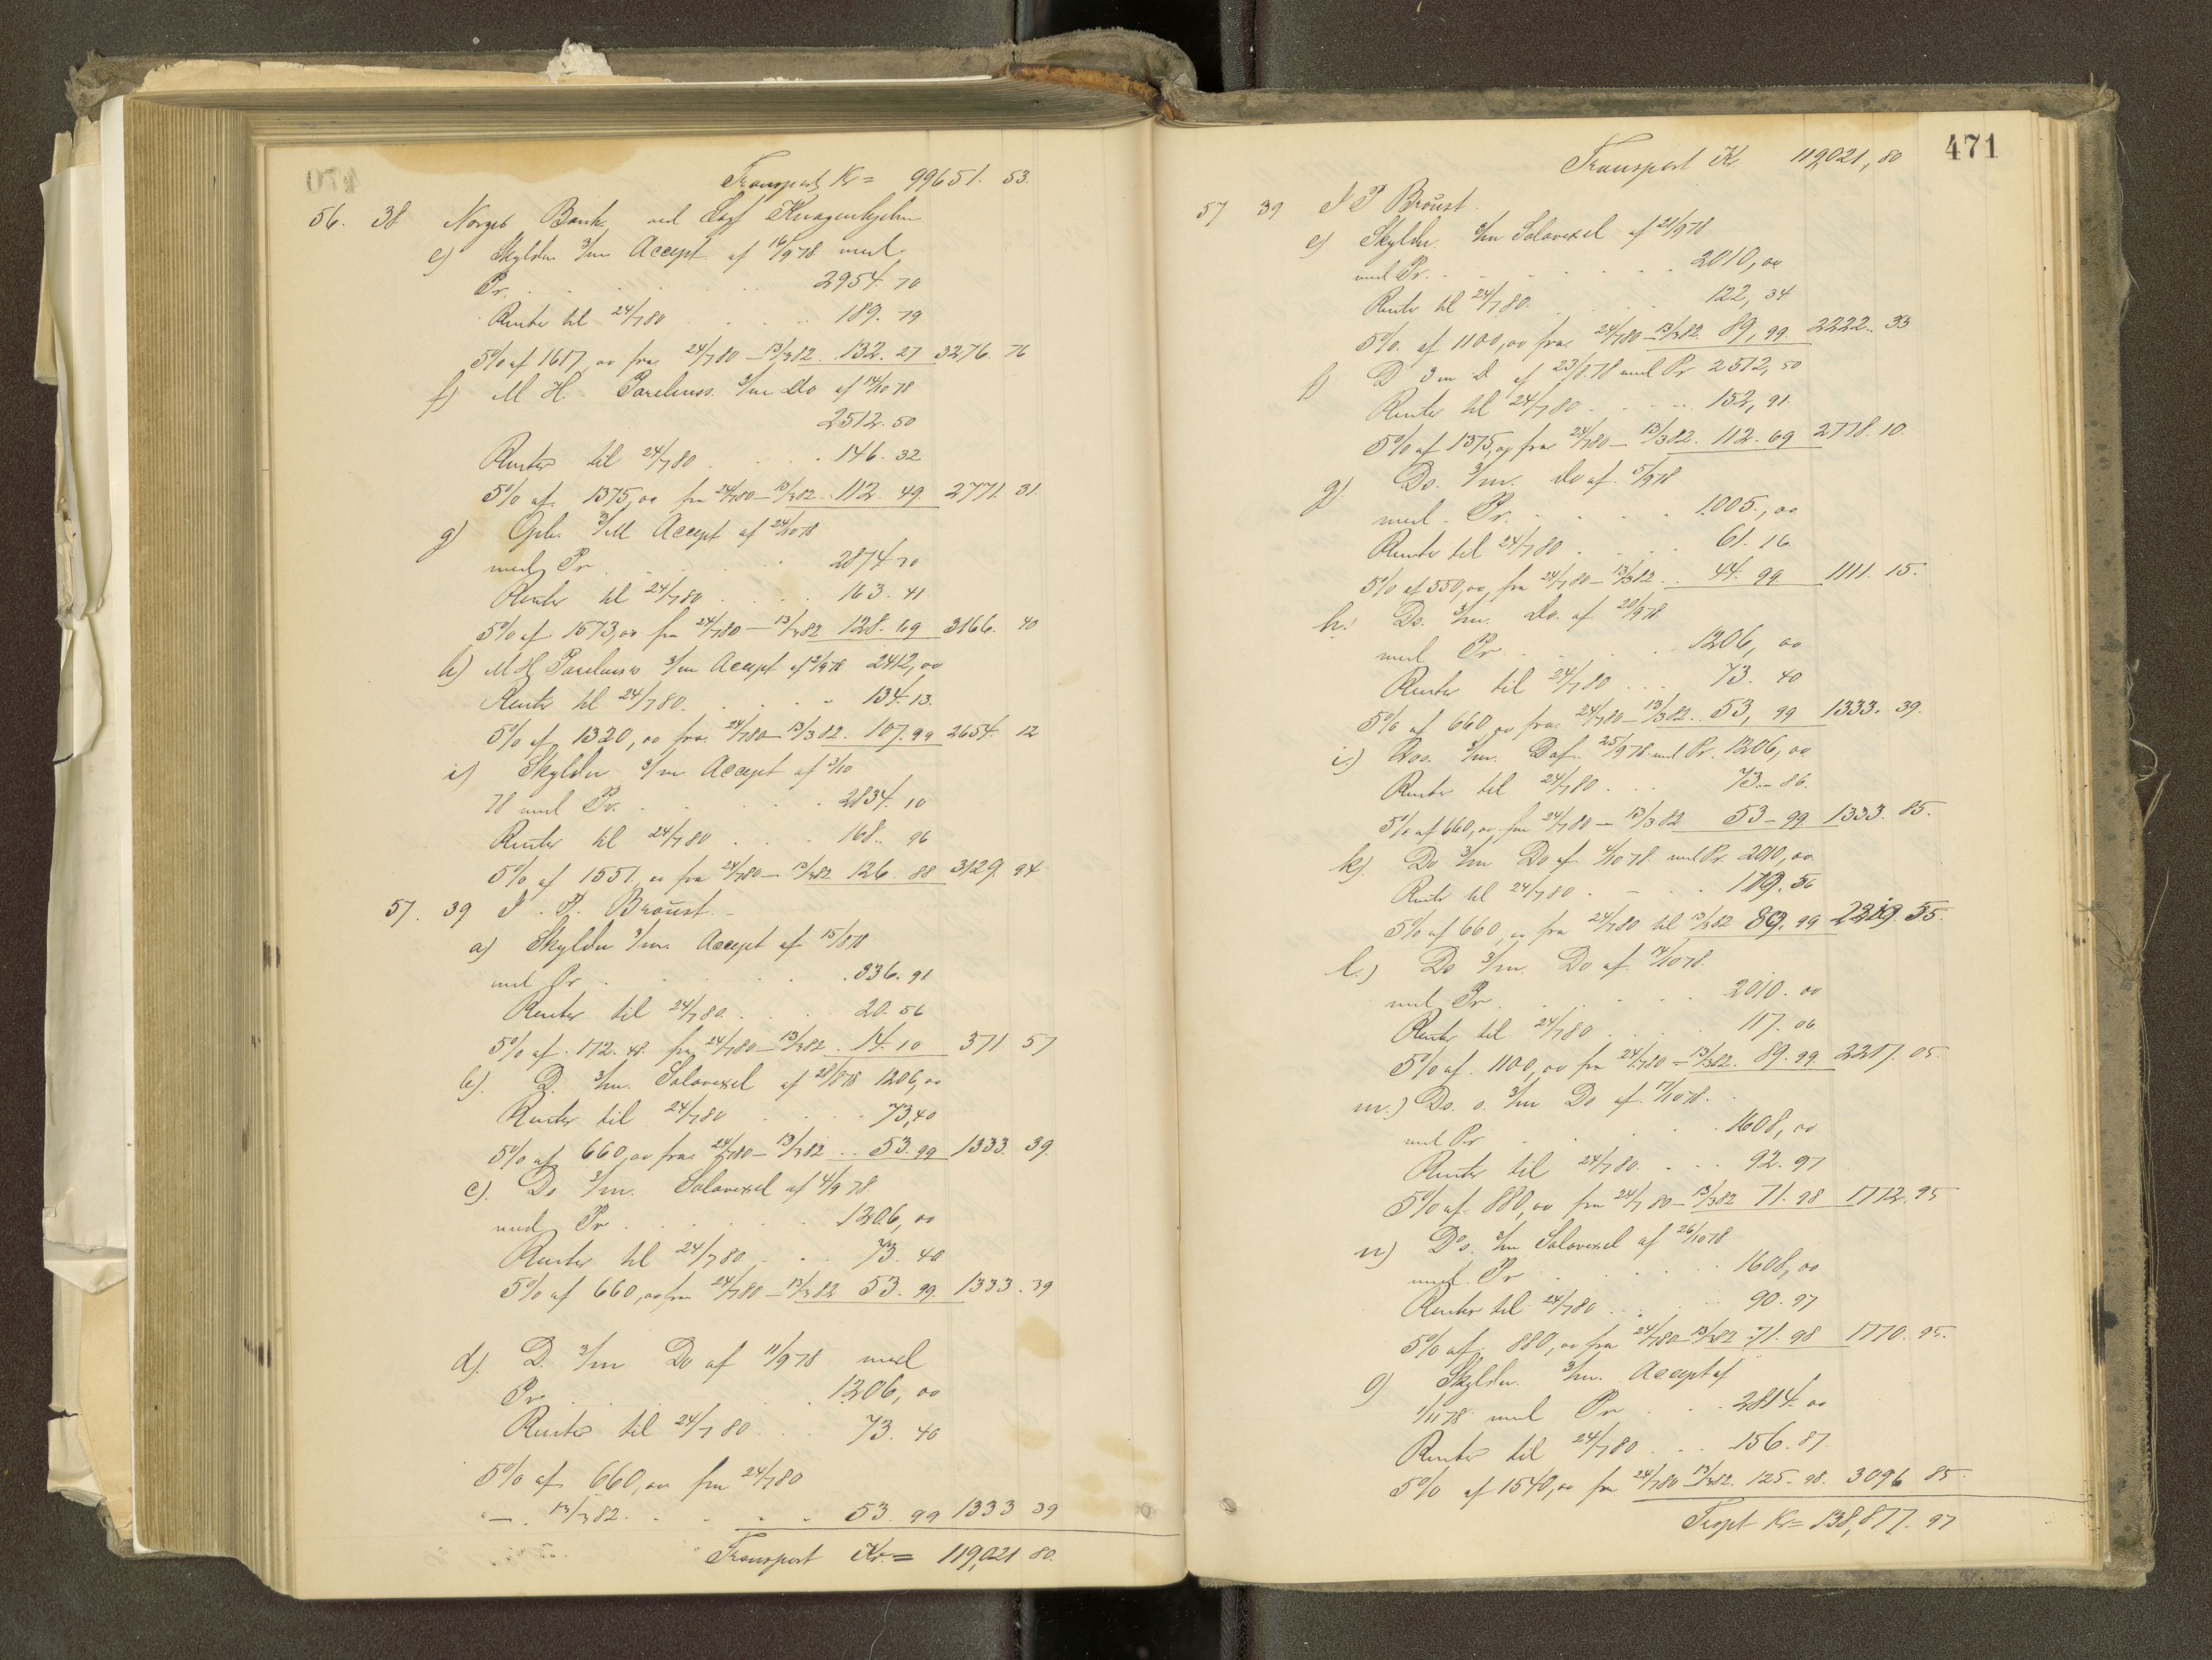 Transport Kr = 99651. 53.
56. 38 Norges Bank ved Sagf Knagenhjelm
e) Skylder 3/m Accept af 16/9 78 med
Pr. 2954. 70
Renter til 24/7 80 189. 79
5% af 1617,00 fra 24/7 80 – 13/3 82 132. 27 3276. 76
f) M. H. 3/m Do af 14/10 78
2512. 50
Renter til 24/7 80 146. 32
5% af 1375,00 fra 24/7 80 – 13/3 82 112. 49 2771. 31.
g) 3/M Accept af 24/10 78
med Pr 2874. 70
Renter til 24/7 80 163. 41
5% af 1573,00 fra 24/7 80 – 13/3 82 128. 69 3166. 40
h) M H 3/m Accept af 2412,00
Renter til 24/7 80. 134. 13.
5% af 1320,00 fra 24/7 80 – 13/3 82. 107. 99 2654. 12
i) Skylder 3/m Accept af 3/10
78 med Pr. 2834. 10
Renter til 24/7 80 168. 96
5% af 1551,00 fra 24/7 80 – 13/3 82 126. 88 3129. 94
57. 39 I. P. Broust.
a) Skylder 3/m Accept af 15/8 78
med Pr 336. 91
Renter til 24/7 80. 20. 56
5% af 172. 48. fra 24/7 80 – 13/3 82. 14. 10 371 57
b). D. 3/m. Solavexel af 28/8 78 1206,00
Renter til 24/7 80 73,40
5% af 660,00 fra 24/7 80 – 13/3 82 53. 99 1333. 39.
c). Do 3/m. Solavexel af 4/9 78.
med Pr 1206,00
Renter til 24/7 80 73. 40
5% af 660,00 fra 24/7 80 – 13/3 82 53. 99. 1333. 39
d). D. 3/m Do af 11/9 78 med
Pr 1206,00
Renter til 24/7 80 73. 40
5% af 660,00 fra 24/7 80
– 13/3 82. 53. 99 1333 39
Transport Kr. = 119,021 80.
471
Transport Kr 119,021,80
57 39 I P Broust.
e) Skylder 3/m Solavexel af 21/9 78
med Pr. 2010,00
Renter til 24/7 80. 122,34
5% af 1100,00 fra 24/7 80 – 13/3 82. 89,99. 2222. 33
f) D 3 m D af 23/8 78 med Pr 2512,50
Renter til 24/7 80 152,91.
5% af 1375,00 fra 24/7 80 – 13/3 82. 112. 69 2778. 10.
g) Do. 3/m. do af 5/9 78
med Pr. 1005,00
Renter til 24/7 80 61. 16
5% af 550,00 fra 24/7 80 – 13/3 82 44. 99 1111. 15.
h. Do. 3/m. do. af 20/9 78
med Pr 1206,00
Renter til 24/7 80 73. 40
5% af 660,00 fra 24/7 80 – 13/3 82 53,99 1333. 39.
i.) 3/m. D af 25/9 78. med Pr. 1206,00
Renter til 24/7 80 73. 86.
5% af 660,00 fra 24/7 80 – 13/3 82 53 – 99 1333. 85.
k). Do 3/m Do af 4/10 78 med Pr. 2010,00
Renter til 24/7 80 119. 56
5% af 660,00 fra 24/7 80 til 13/3 82 89. 99 2219. 55.
l.) Do 3/m. Do af 14/10 78.
med Pr 2010. 00
Renter til 24/7 80 117. 06
5% af 1100,00 fra 24/7 80 – 13/3 82. 89. 99. 2217. 05.
m.) Do. s. 3/m Do af 17/10 78.
med Pr 1608,00
Renter til 24/7 80. 92. 97
5% af 880,00 fra 24/7 80 – 13/3 82 71. 98 1772. 95
n) Do. 3/m Solavexel af 26/10 78
med. Pr 1608,00
Renter til 24/7 80 90. 97
5% af 880,00 fra 24/7 80 – 13/3 82 71. 98 1770. 95.
o) Skylder 3/m. Accept af
1/11 78 med Pr 2814. 00
Renter til 24/7 80 156. 87.
5% af 1540,00 fra 24/7 80 – 13/3 82. 125. 98. 3096 85.
Trspt Kr = 138,877. 97